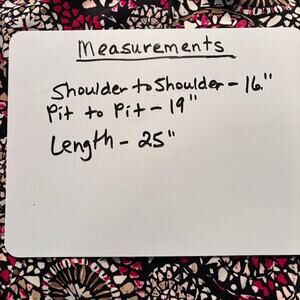 Measurements
Shoulder to Shoulder - 16."
Pit to Pit - 19"
Length - 25"